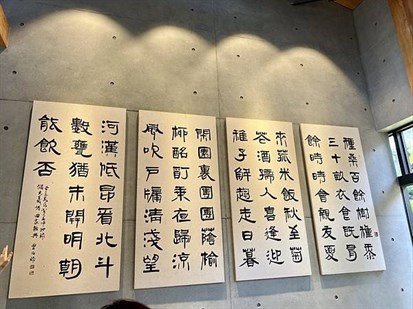 種桑百餘樹種黍
三十畝衣食既有
餘時時會親友夏
來菰米飯秋至菊
花酒孺人喜逢迎
稚子解趨走日暮
閑園裏團團蔭榆
柳酩酊乘夜歸涼
風吹戶牖清淺望
河漢低昂看北斗
數甕猶未開明朝
能飲否